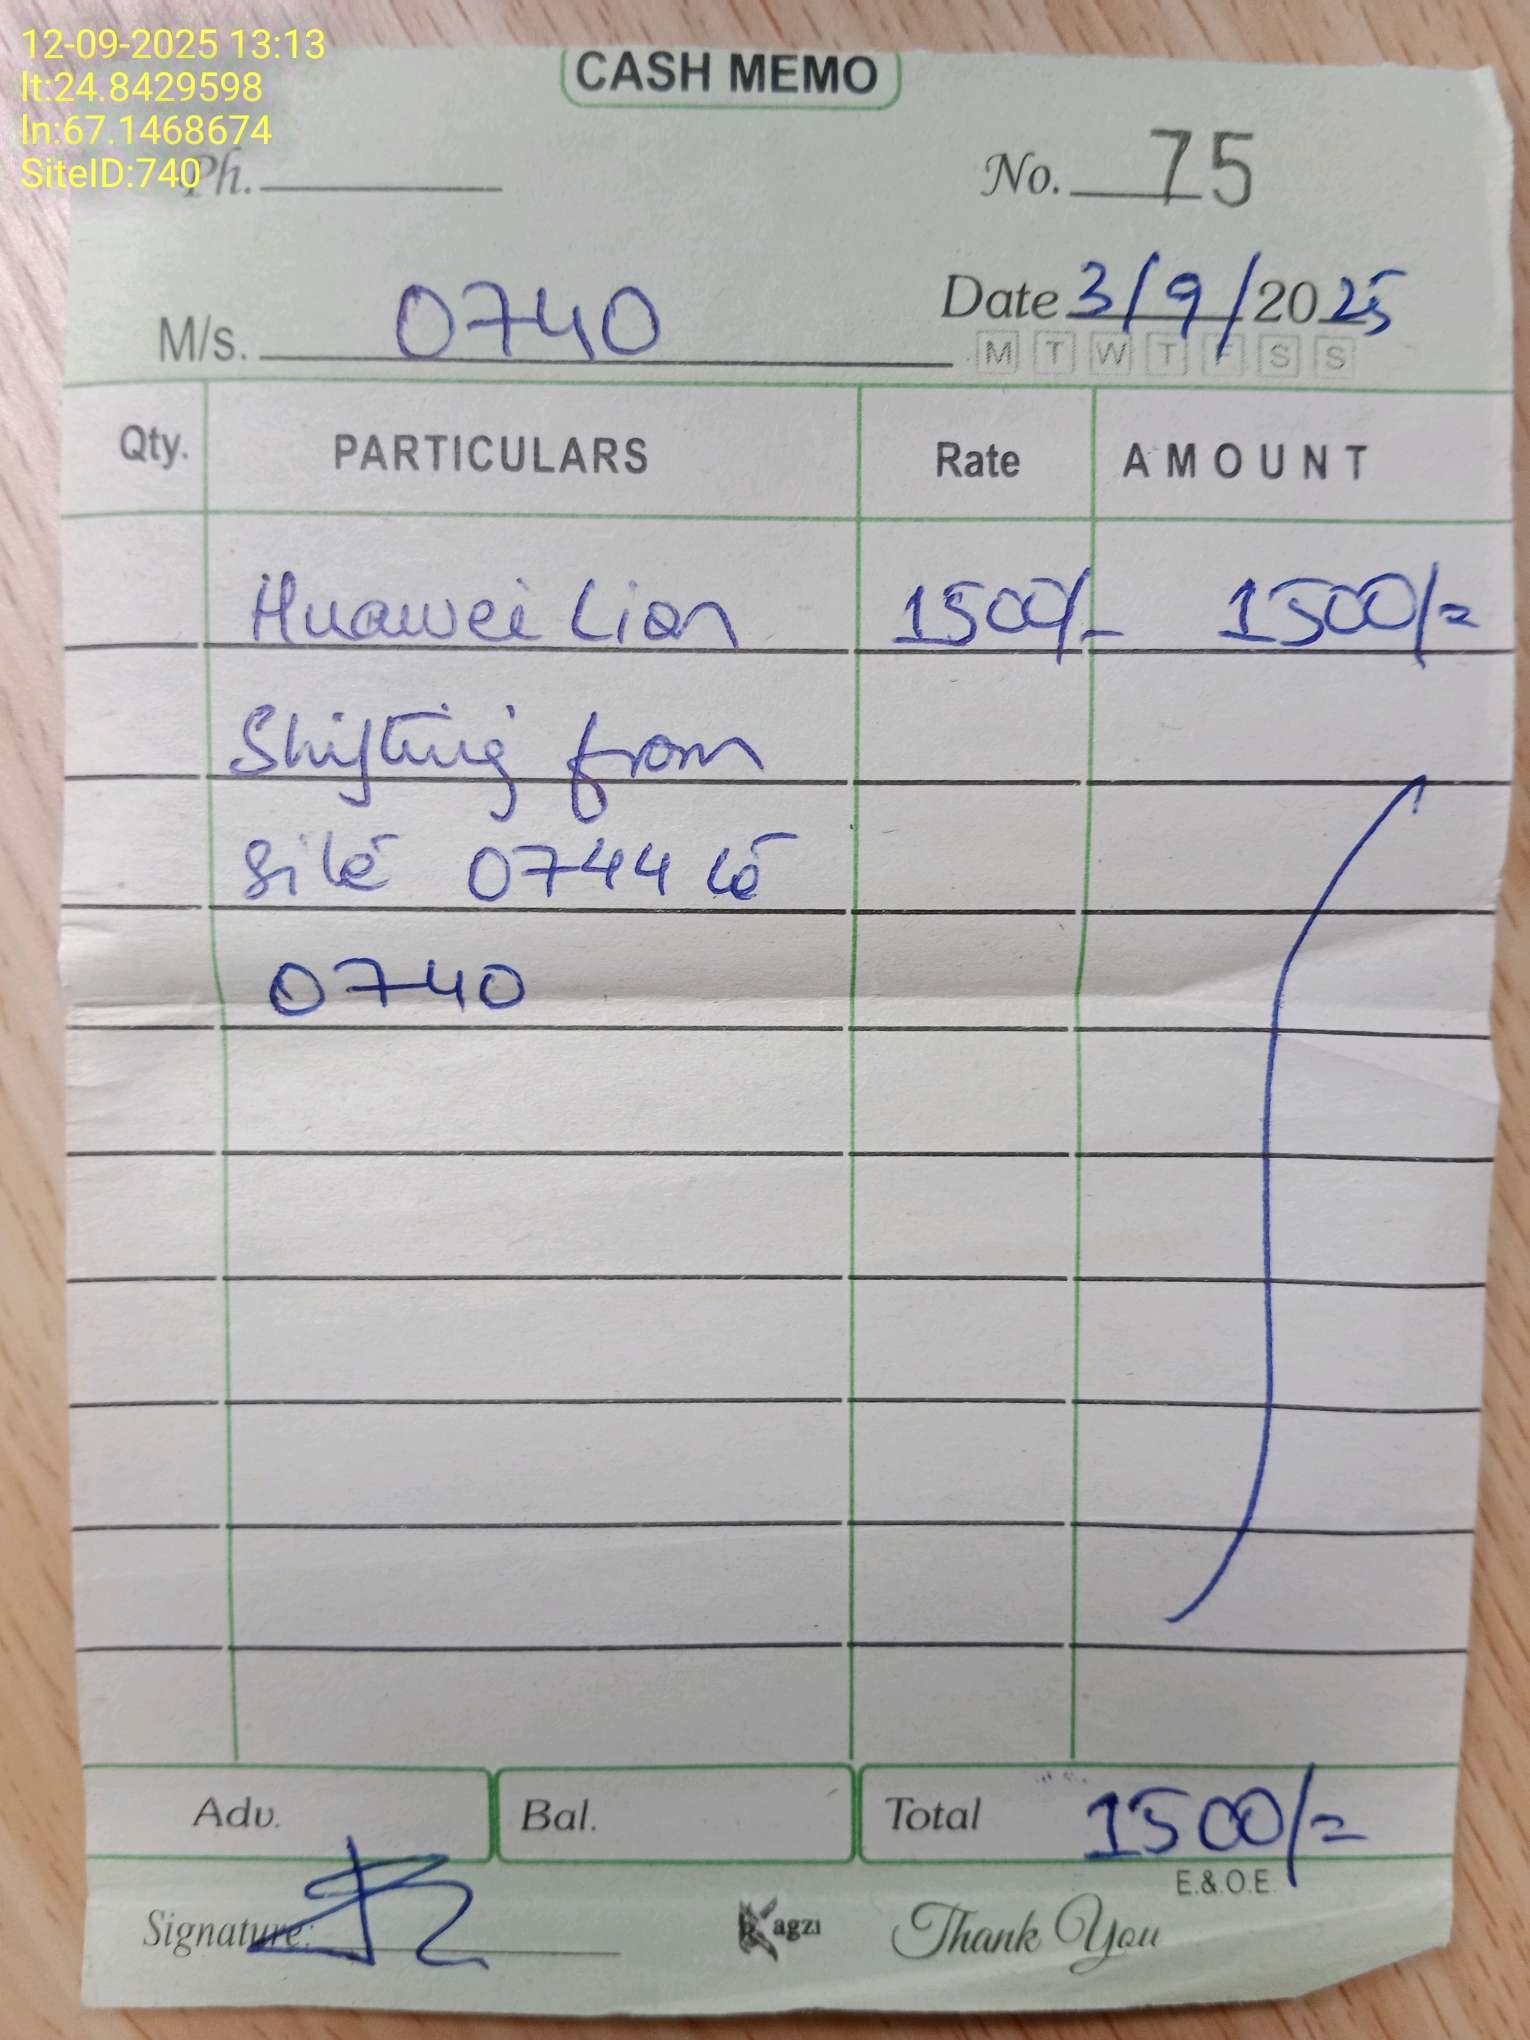 12-09-2025 13:13
lt:24.8429598
ln:67.1468674
SiteID:740
CASH MEMO
Ph.
No. 75
M/s. 0740
Date 3/9/2025
M T W T F S S
Qty. PARTICULARS Rate AMOUNT
Huawei Lion 1500/- 1500/=
Shifting from
Site 0744 to
0740
Adv. Bal. Total 1500/=
E.&.O.E.
Signature: Kagzi Thank You